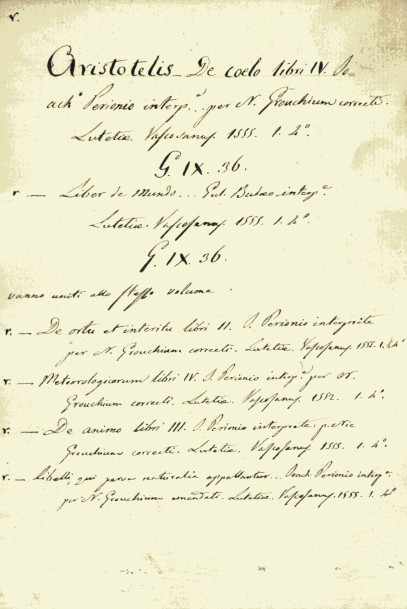 r.
Aristotelis – De coelo libri IV. Jo=
ach.º Perionio interp.º per N. Grouchium correcti.
Lutetiæ. Vascosanus. 1555. 1. 4º.
G. IX. 36.
r – Liber de Mundo... Gul. Budæo interp.e
Lutetiæ. Vascosanus. 1555. 1. 4º
G. IX. 36.
vanno uniti allo stesso volume
r. – De ortu et interitu libri II. J. Perionio interprete
per N. Grouchium correcti. Lutetiæ. Vascosanus. 1555. 1. 4º
r. – Meteorologicorum libri IV. J. Perionio interp.e per N.
Grouchium correcti. Lutetiæ. Vascosanus. 1552. 1. 4º.
r. – De animo libri III. J. Perionio interprete.
Grouchium correcti. Lutetiæ. Vascosanus. 1555. 1. 4º.
r. – Libelli qui parva naturalia appellantur... Joach. Perionio interp.e
per N. Grouchium emendati. Lutetiæ. Vascosanus. 1555. 1. 4º